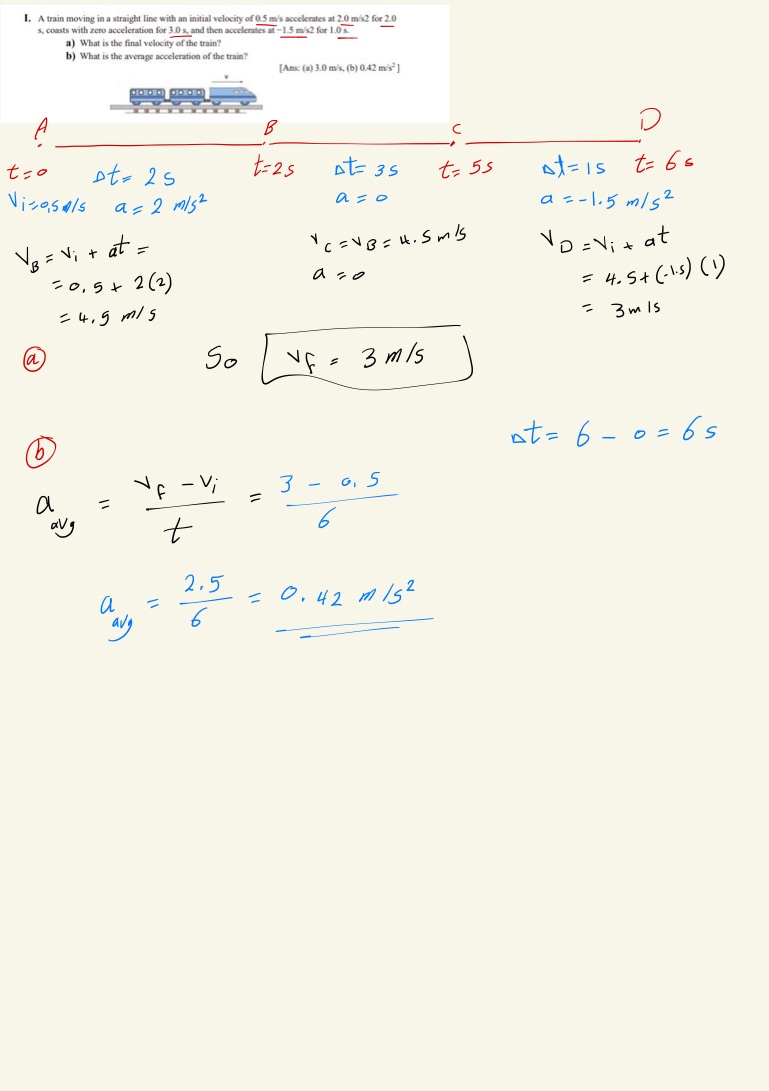 I. A train moving in a straight line with an initial velocity of 0.5 m/s accelerates at 2.0 m/s2 for 2.0
s, coasts with zero acceleration for 3.0 s, and then accelerates at −1.5 m/s2 for 1.0 s.
a) What is the final velocity of the train?
b) What is the average acceleration of the train?
[Ans: (a) 3.0 m/s, (b) 0.42 m/s²]
v
A B C D
t=0 Δt= 2s t=2s Δt= 3s t= 5s Δt=1s t= 6s
Vi=0,5 m/s a= 2 m/s² a=0 a=-1.5 m/s²
VB = Vi + at = VC = VB = 4.5 m/s VD = Vi + at
= 0,5 + 2(2) a=0 = 4.5+(-1.5)(1)
= 4.5 m/s = 3 m/s
(a) So Vf = 3 m/s
(b) Δt= 6 - 0 = 6s
a avg = Vf - Vi / t = 3 - 0.5 / 6
a avg = 2.5 / 6 = 0.42 m/s²